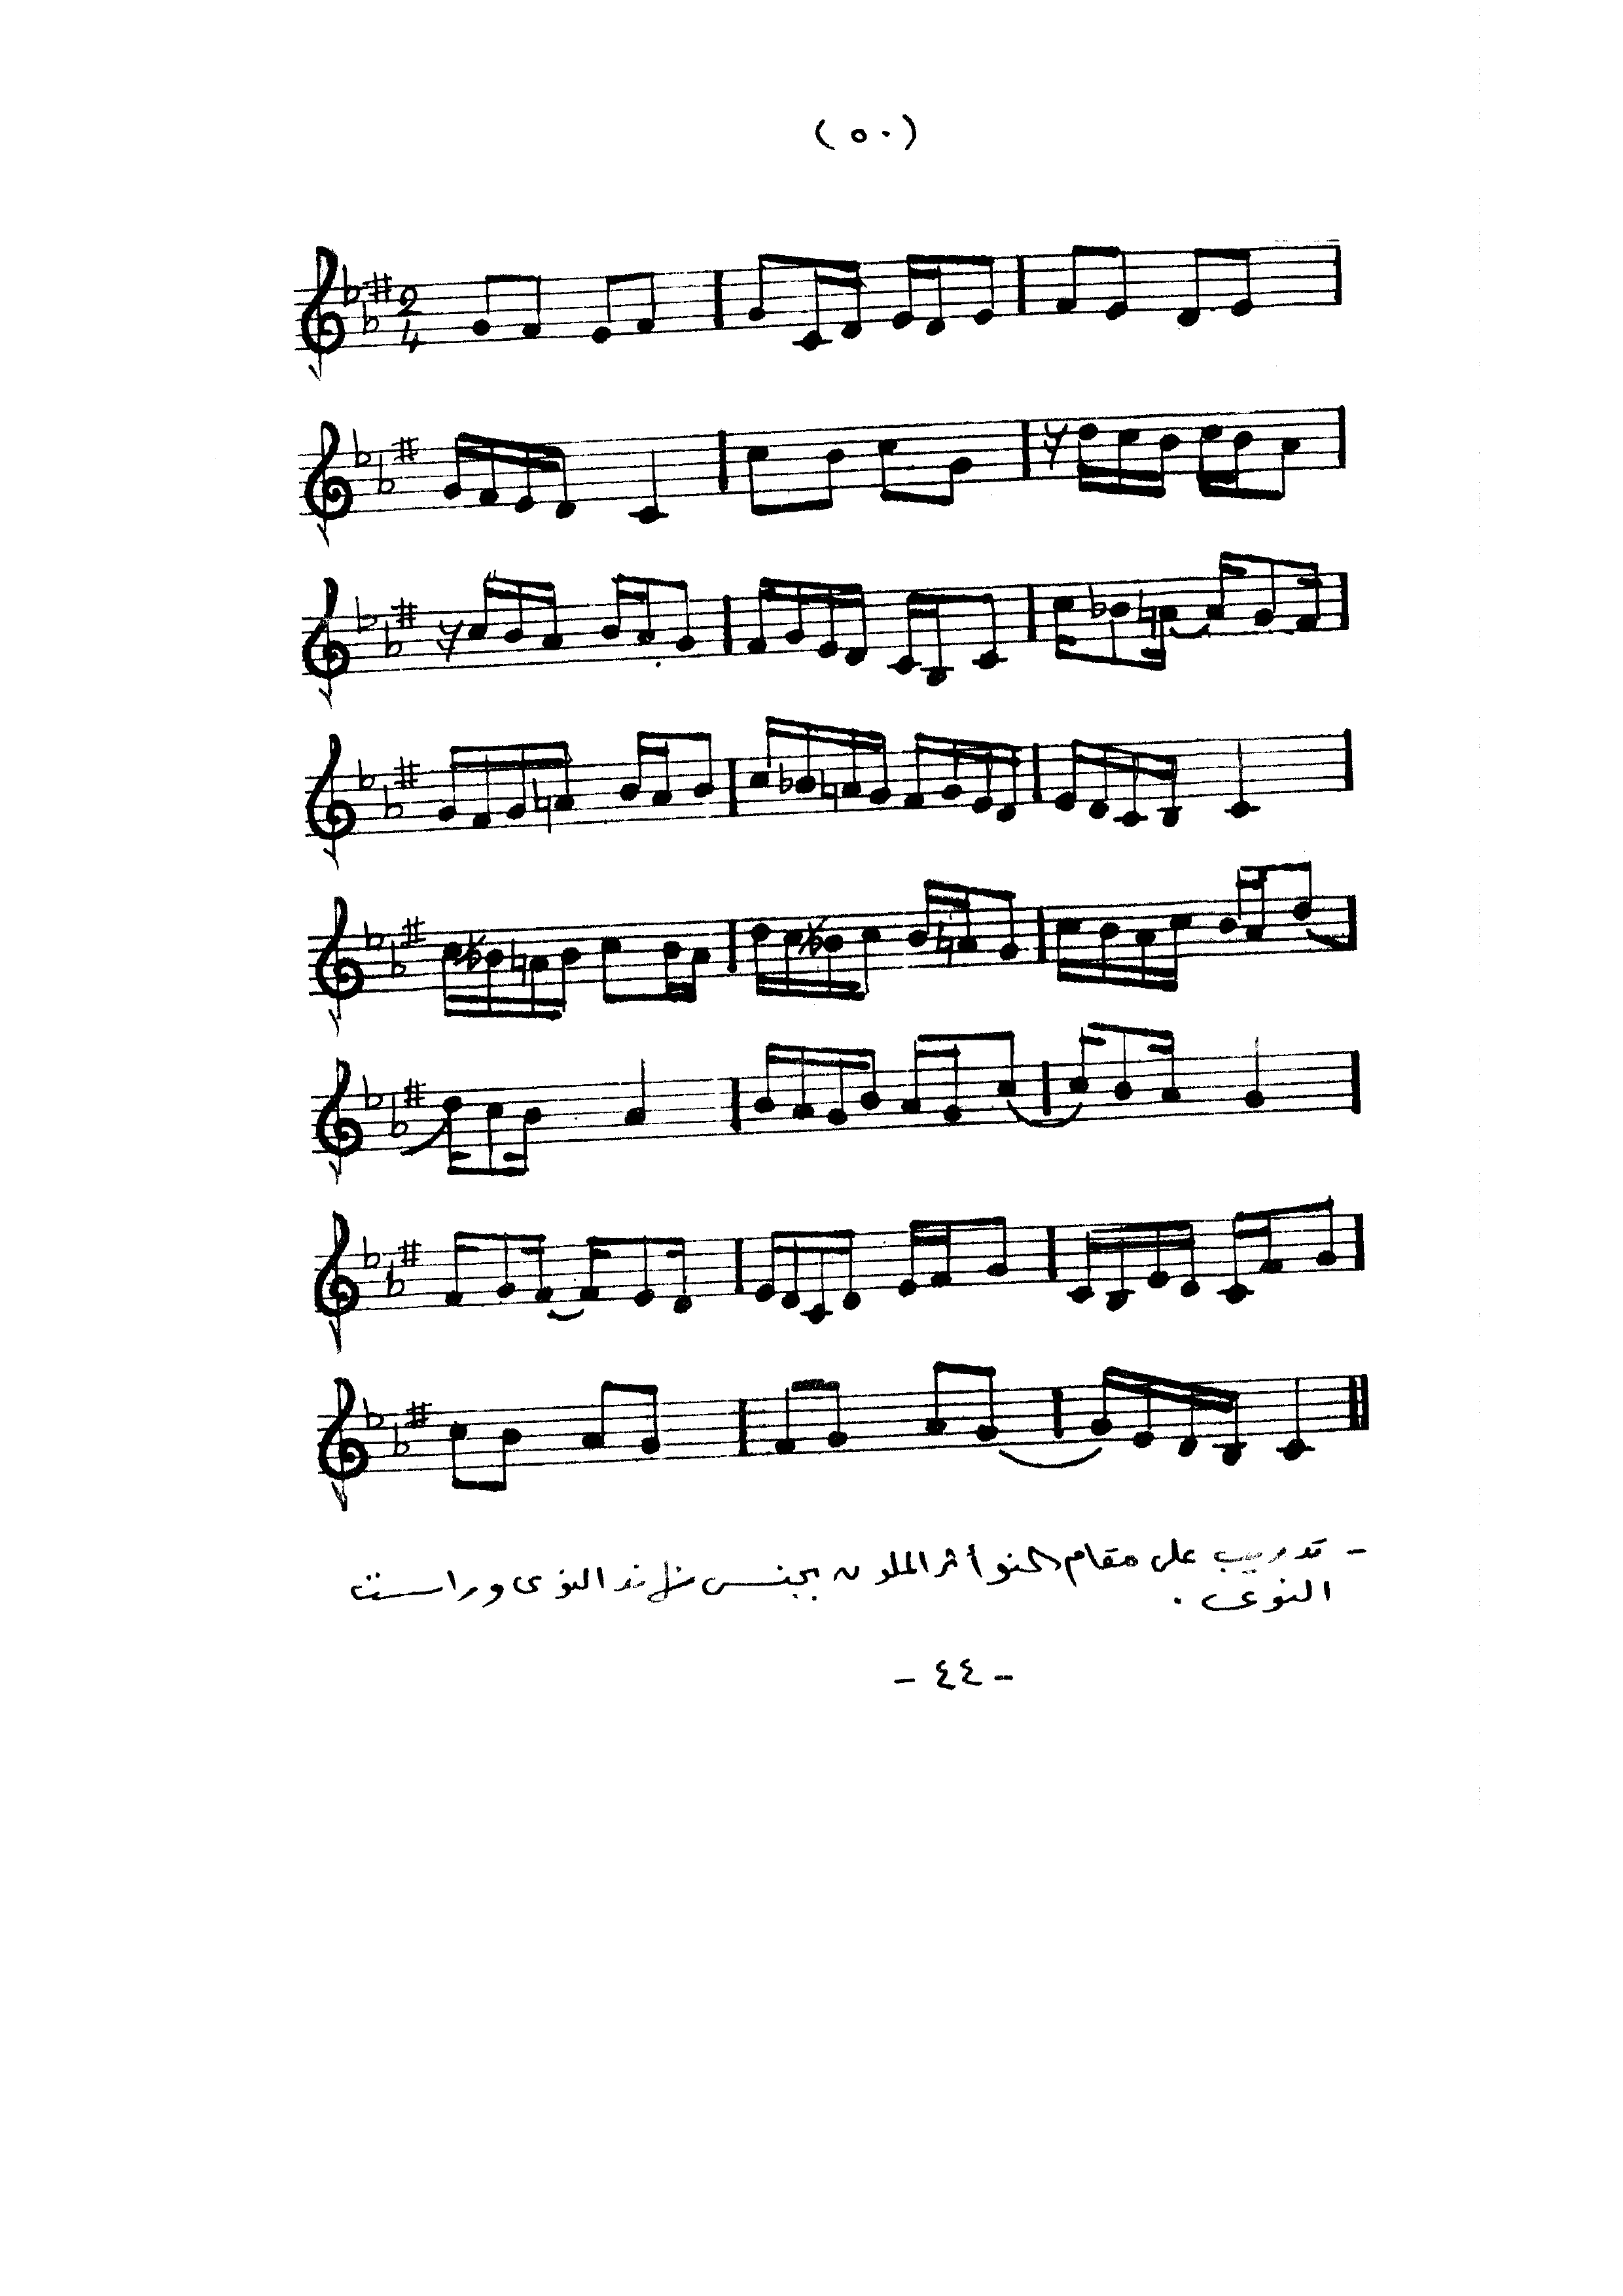 (٥٠)
2
4
- تدريب على مقام النوأثر الملون بجنس نهاوند النوى وراست
النوى .
- ٤٤ -